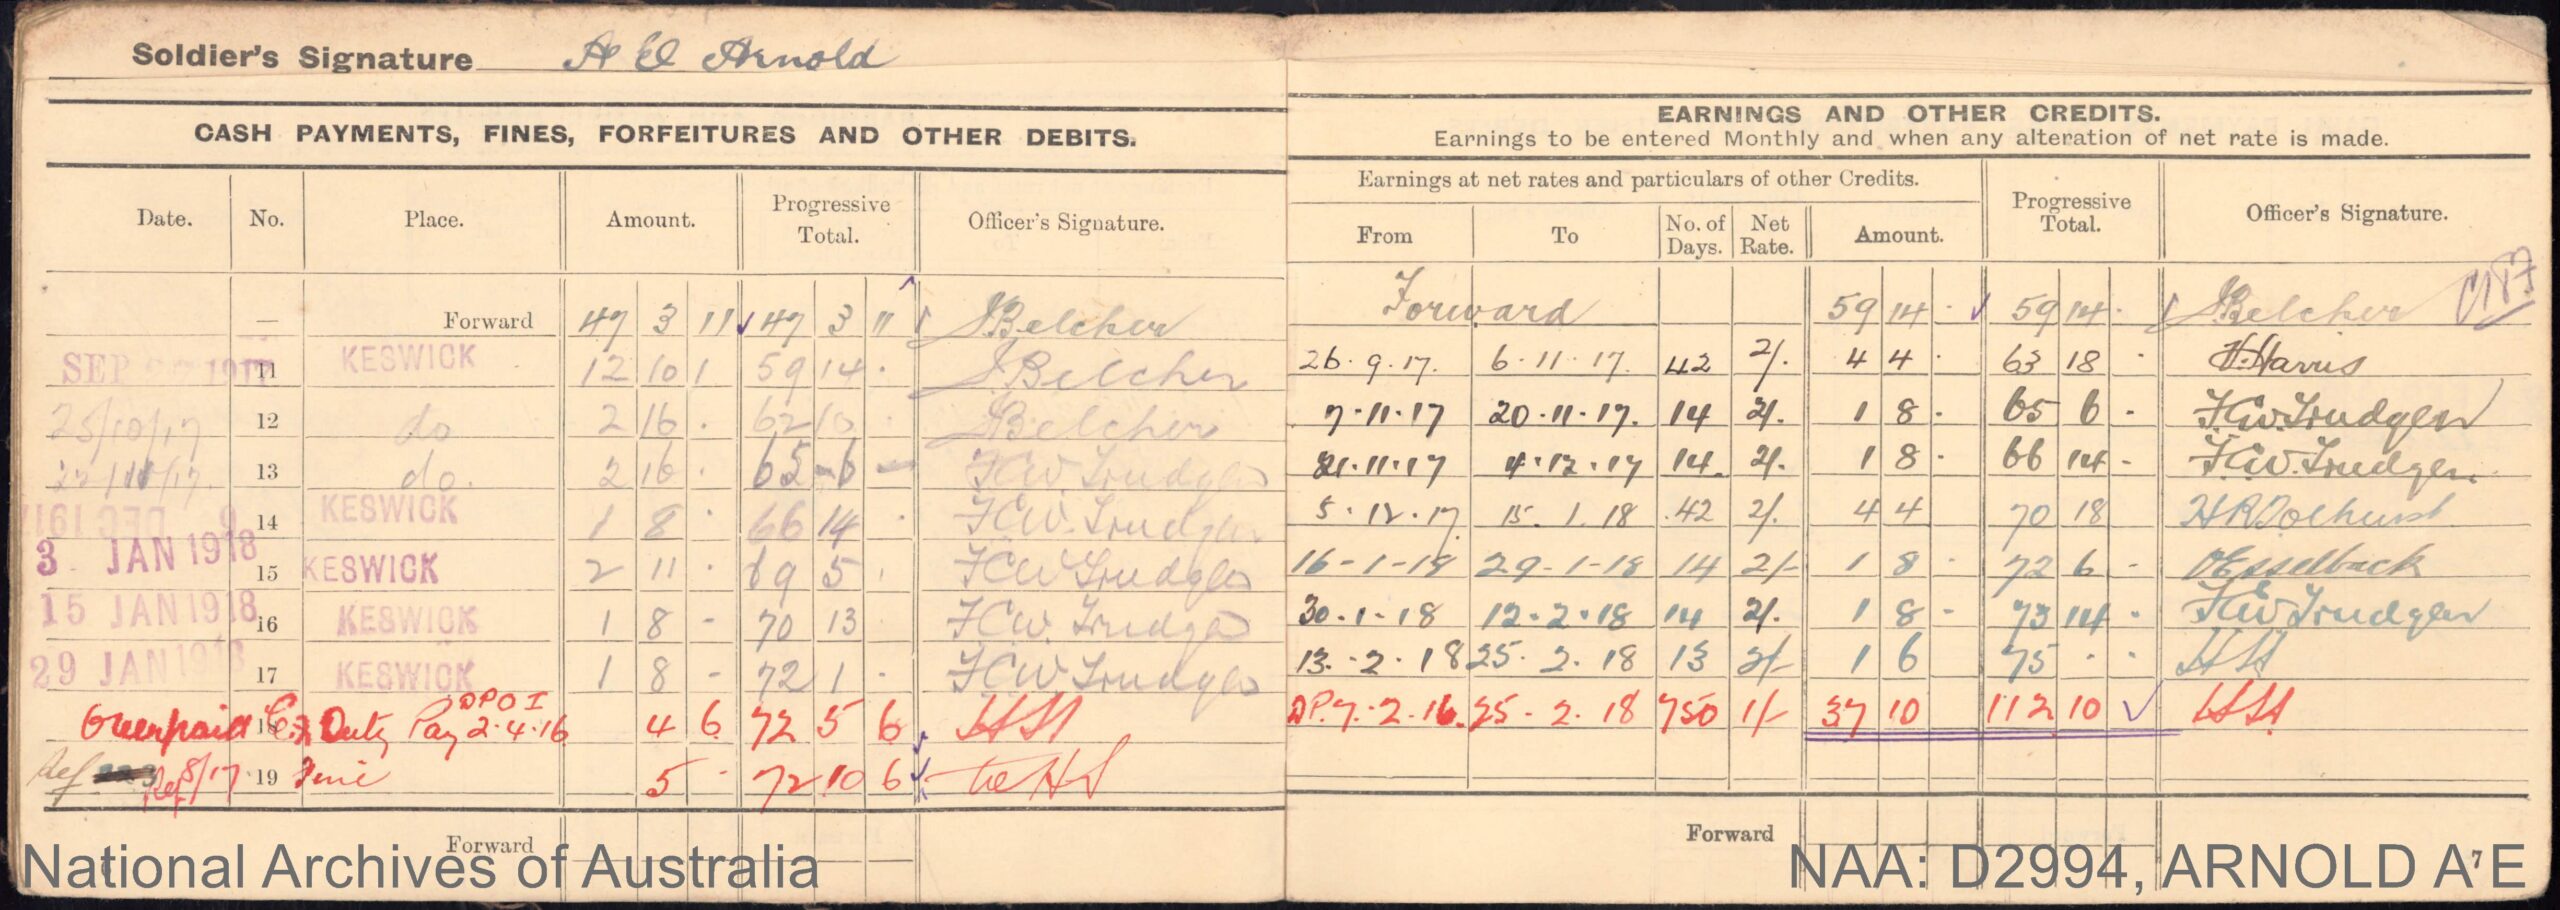 Soldier's Signature A E Arnold
CASH PAYMENTS, FINES, FORFEITURES AND OTHER DEBITS.
Date. No. Place. Amount. Progressive Total. Officer's Signature.
— Forward 47 3 11 47 3 11 Belcher
SEP 1917 11 KESWICK 12 10 1 59 14 . Belcher
25/10/17 12 do 2 16 . 62 10 . Belcher
22/11/17. 13 do. 2 16 . 65 - 6 - F.C.W. Trudgen
6 DEC 1917 14 KESWICK 1 8 . 66 14 . F.C.W. Trudgen
3 JAN 1918 15 KESWICK 2 11 . 69 5 . F.C.W. Trudgen
15 JAN 1918 16 KESWICK 1 8 - 70 13 F.C.W. Trudgen
29 JAN 1918 17 KESWICK 1 8 - 72 1 . F.C.W. Trudgen
Overpaid 18 Ex Duty Pay DPO I 2.4.16 4 6 72 5 6 HH
Ref 8/17 19 Fine 5 - 72 10 6
Forward
EARNINGS AND OTHER CREDITS.
Earnings to be entered Monthly and when any alteration of net rate is made.
Earnings at net rates and particulars of other Credits. Progressive Total. Officer's Signature.
From To No. of Days. Net Rate. Amount.
Forward 59 14 . 59 14 . Belcher
26.9.17. 6.11.17. 42 2/. 4 4 . 63 18 - H. Harris
7.11.17 20.11.17. 14 2/. 1 8 . 65 6 - F.C.W. Trudgen
21.11.17 4.12.17 14. 2/. 1 8 . 66 14 - F.C.W. Trudgen
5.12.17 15.1.18 42 2/. 4 4 70 18
16-1-18 29-1-18 14 2/- 1 8 - 72 6 - Esselback
30-1-18 12.2.18 14 2/. 1 8 - 73 14 - F.C.W. Trudgen
13.2.18 25.2.18 13 2/- 1 6 75 . . HH
DP. 7.2.16. 25-2.18 750 1/- 37 10 112 10 HH
Forward
7
National Archives of Australia
NAA: D2994, ARNOLD A E